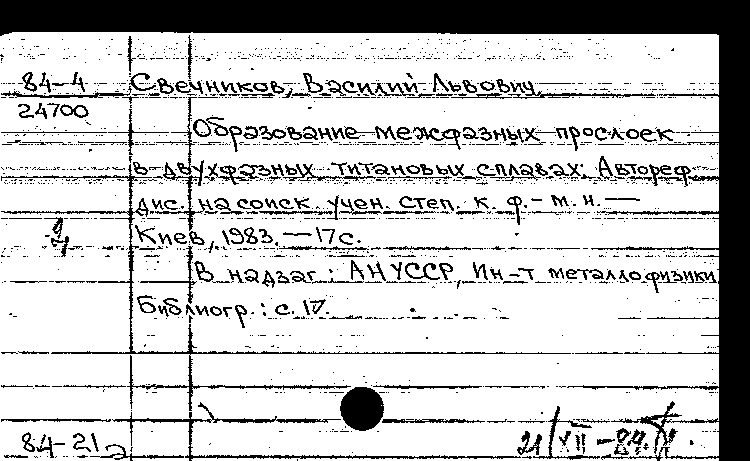 84-4 Свечников, Василий Львович.
24700
Образование межфазных прослоек
в двухфазных титановых сплавах: Автореф.
дис. на соиск. учен. степ. к. ф.-м. н. —
Киев, 1983. — 17 с.
В надзаг.: АН УССР, Ин-т металлофизики
Библиогр.: с. 17.
84-21 21/XII-84.